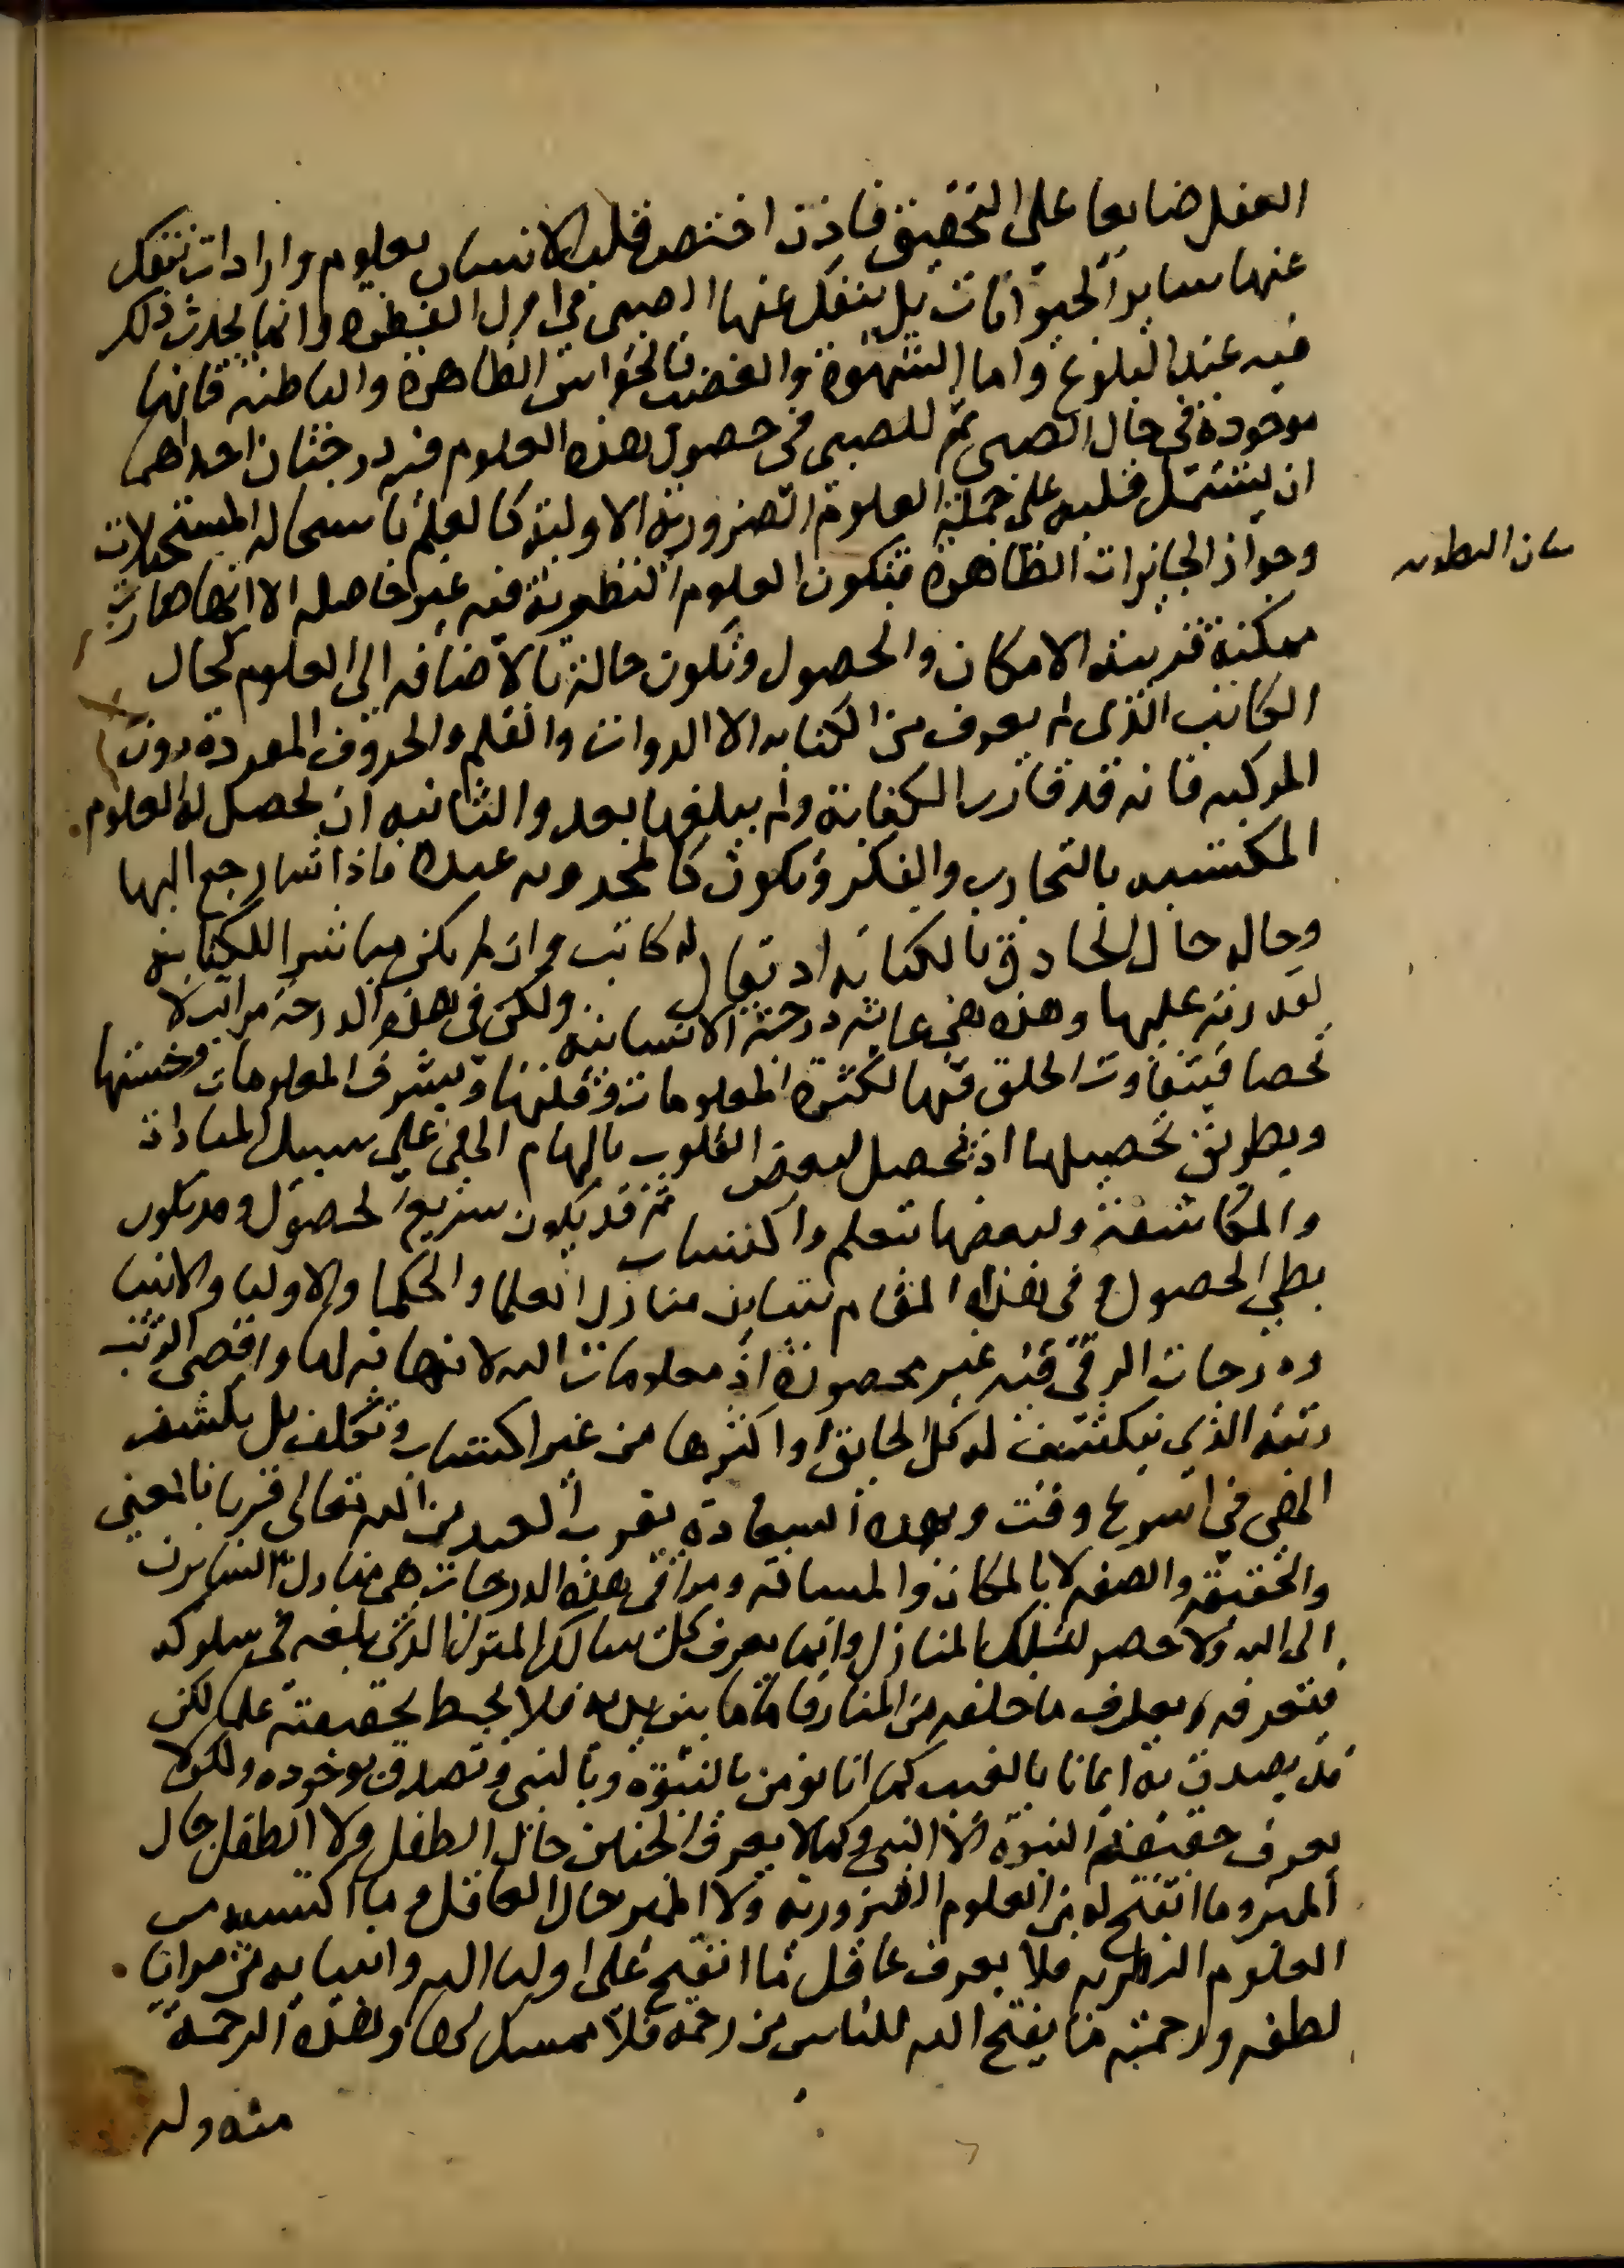 العقل ضايعا على التحقيق فاذن اختص قلب الانسان بعلوم وارادات تنفك
عنها ساير الحيوانات بل ينفك عنها الصبي في اول الفطره وانما يحدث ذلك
فيه عند البلوغ واما الشهوة والغضب فالحواس الظاهرة والباطنه فانها
موجودة في حال الصبى ثم للصبى في حصول هذه العلوم فيه درجتان احداهما
ان يشتمل قلبه على جملة العلوم الضرورية الاولية كالعلم باستحاله المستحيلات
وجواز الجايزات الظاهرة فتكون العلوم النظرية فيه غير حاصله الا انها صارت
ممكنة قريبة الامكان والحصول وتكون حالته بالاضافه الى العلوم كحال
الكاتب الذى لم يعرف من الكتابه الا الدوات والقلم والحروف المفردة دون
المركبه فانه قد قارب الكتابة ولم يبلغها بعد والثانيه ان تحصل له العلوم
المكتسبه بالتجارب والفكر وتكون كالمخزونه عنده فاذا شا رجع اليها
وحاله حال الحاذق بالكتابه اذ يقال له كاتب وان لم يكن مباشرا للكتابة
لقدرته عليها وهذه هي غاية درجة الانسانيه ولكن في هذه الدرجة مراتب لا
تحصا فيتفاوت الخلق فيها لكثرة المعلومات وقلتها وبشرف المعلومات وخستها
وبطريق تحصيلها اذ تحصل لبعض القلوب بالهام الهي على سبيل المبادات
والمكاشفة ولبعضها بتعلم واكتساب ثم قد يكون سريع الحصول وقد يكون
بطي الحصول وفي هذا المقام تتباين منازل العلما والحكما والاوليا والانبيا
ودرجات الترقي فيه غير محصورة اذ معلومات الله لا نهايه لها واقصى الرتب
رتبة الذي تنكشف له كل الحايق او اكثرها من غير اكتساب وتكلف بل بكشف
الهي في اسرع وقت وبهذه السعادة يقرب العبد من الله تعالى قربا بالمعنى
والحقيقه والصفه لا بالمكان والمسافة ومراقي هذه الدرجات هي منازل السايرين
الى الله ولا حصر لتلك المنازل وانما يعرف كل سالك المنزل الذى بلغه في سلوكه
فيعرفه ويعرف ما خلفه من المنازل فاما ما بين يديه فلا يحيط بحقيقته علما لكن
قد يصدق به ايمانا بالغيب كما انا نومن بالنبوة وبالنبى ونصدق بوجوده ولكن لا
يعرف حقيقة النبوة الا النبي وكما لا يعرف الجنين حال الطفل ولا الطفل حال
المميز وما انفتح له من العلوم الضرورية ولا المميز حال العاقل وما اكتسبه من
العلوم النظريه فلا يعرف عاقل ما انفتح على اوليا الله وانبيايه من مزايا
لطفه ورحمته ما يفتح الله للناس من رحمة فلا ممسك لها وهذه الرحمة
مبذوله
بيان النظريه